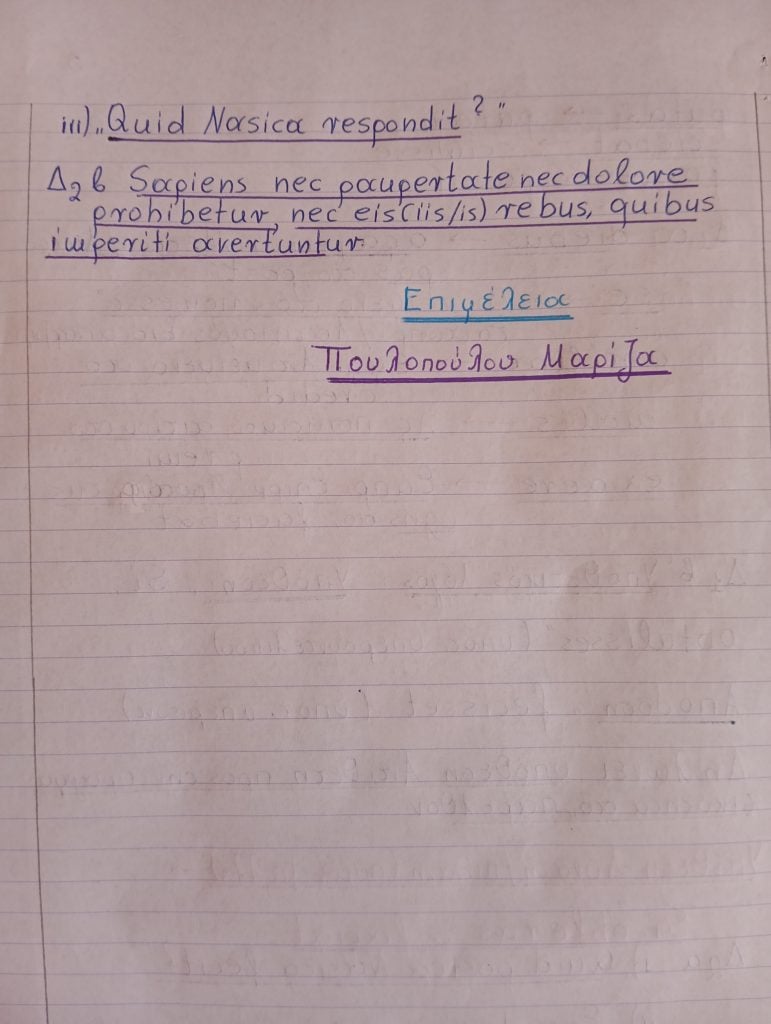 iii) „Quid Nasica respondit?"
Δ2 β Sapiens nec paupertate nec dolore
prohibetur, nec eis (iis/is) rebus, quibus
imperiti avertuntur.
Επιμέλεια
Πουλοπούλου Μαρίζα